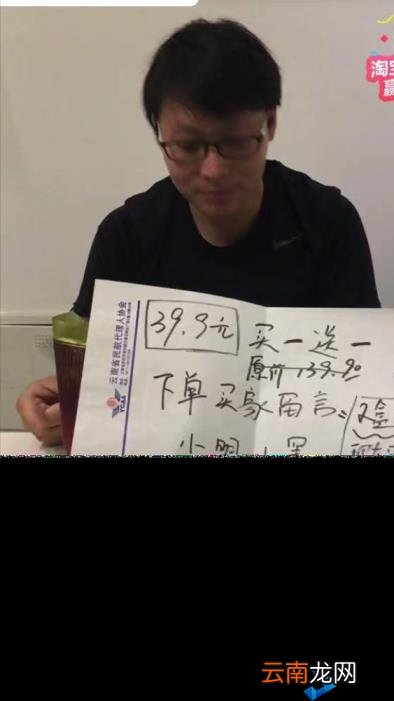 淘宝
赢
39.9元
买一送一
原价139.90
下单买家留言:
2盒
小明
云南省民航代理人协会
YCAA
云南龙网